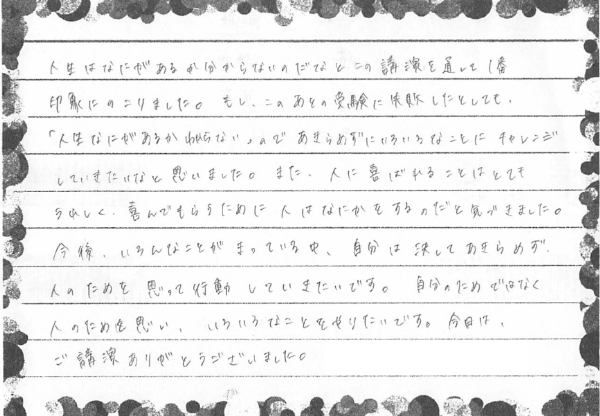 人生はなにがあるか分からないのだなとこの講演を通して1番
印象にのこりました。もし、このあとの受験に失敗したとしても、
「人生なにがあるかわからない」ので あきらめずにいろいろなことに チャレンジ
していきたいなと思いました。また、人に喜ばれることはとても
うれしく、喜んでもらうために人はなにかをするのだと気づきました。
今後、いろんなことがまっている中、自分は決してあきらめず、
人のためを思って行動していきたいです。自分のためではなく
人のためを思い、いろいろなことをやりたいです。今日は、
ご講演ありがとうございました。